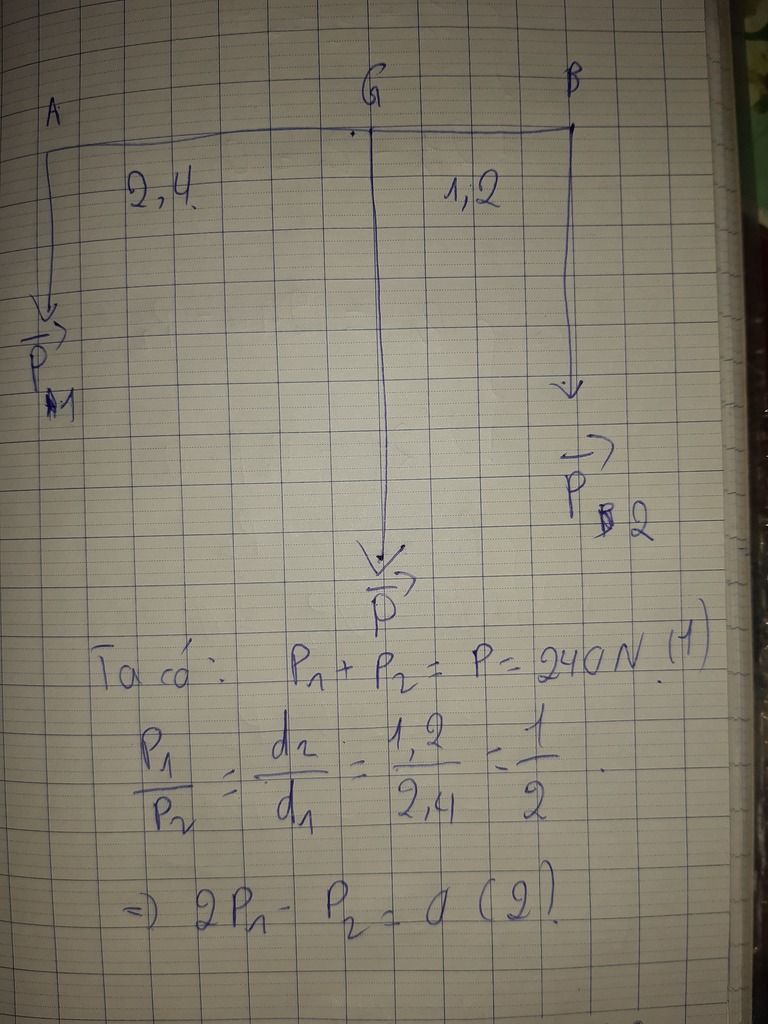 A G B
2,4 1,2
P⃗ 1
P⃗ 2
P⃗
Ta có: P₁ + P₂ = P = 240N. (1)
P₁/P₂ = d₂/d₁ = 1,2/2,4 = 1/2.
=> 2P₁ - P₂ = 0 (2).